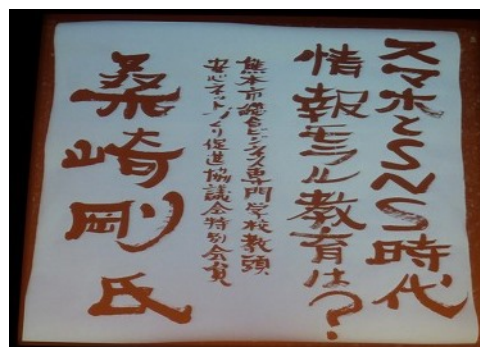 スマホとSNS時代
情報モラル教育は?
熊本市総合ビジネス専門学校教頭
安心ネットづくり促進協議会特別会員
桑崎剛氏